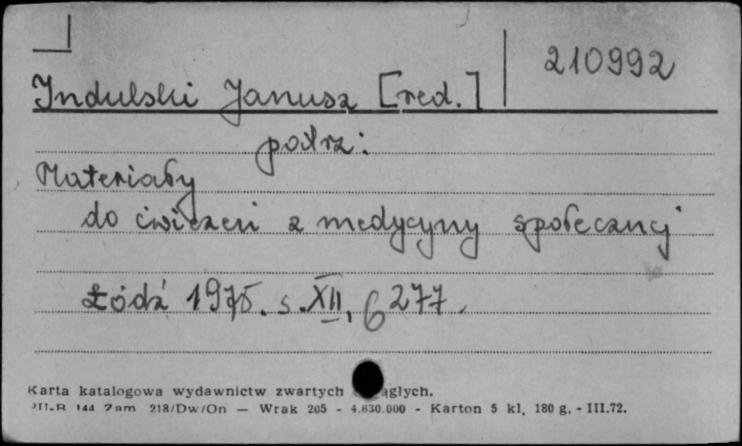 210992
Indulski Janusz [red.]
patrz:
Materiały
do ćwiczeń z medycyny społecznej
Łódź 1975. s. XII, 6 277.
Karta katalogowa wydawnictw zwartych ągłych.
218/Dw/On — Wrak 205 - 4.630.000 - Karton 5 kl. 180 g. - III.72.